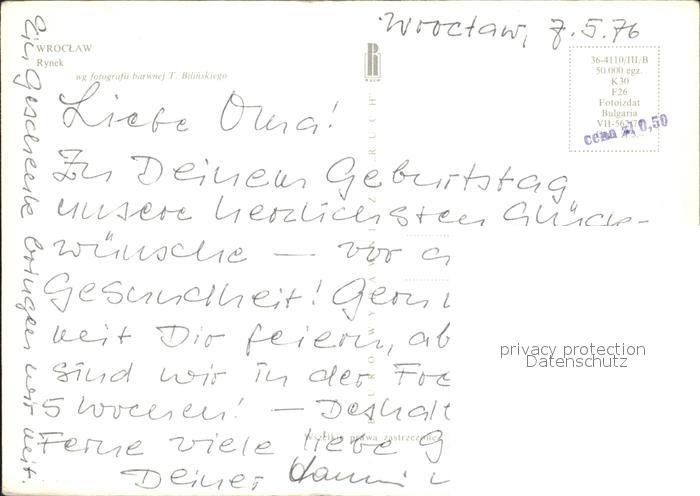 Wrocław, 7.5.76
WROCŁAW
Rynek
wg fotografii barwnej T. Bilińskiego
36-4110/III/B
50 000 egz.
K30
F26
Fotoizdat
Bulgaria
VII-562/7
cena zł 0,50
RUCH
Liebe Oma!
Zu Deinem Geburtstag
unsere herzlichsten Glück-
wünsche — vor a
Gesundheit! Gern
mit Dir feiern, ab
sind wir in der
5 Wochen! — Deshal
Ferne viele liebe G
Deiner
Wszelkie prawa zastrzeżone
Ein Geschenk bringen wir mit.
privacy protection
Datenschutz